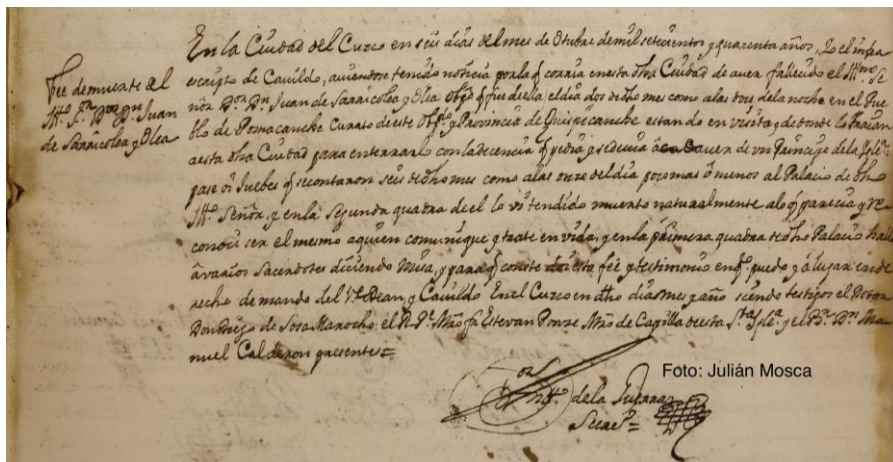 Fee de muerte del
Illᵐᵒ. Sᵒʳ. Dᵒʳ. Dⁿ. Juan
de Sarricolea y Olea
En la Ciudad del Cuzco en seis dias del mes de Otubre de mil setecientos y quarenta años, Yo el infra
escripto de Cavildo, aviendose tenido noticia por la q̃ corria en esta dha Ciudad de aver fallecido el Illᵐᵒ. Se
ñor Dᵒʳ. Dⁿ. Juan de Sarricolea y Olea Obpo q̃ fue de ella, el dia dos de dho mes como a las dos de la noche en el Pue
blo de Pomacanche Curato de este Obpᵈᵒ. y Provincia de Quispecanche estando en visita, y de donde lo traian
a esta dha Ciudad para enterrarlo con la decencia q̃ pedia y se devia à cadaver de un Principe de la Iglᵃ.
pase oi Juebes q̃ se contaron seis de dho mes como a las onze del dia poco mas ó menos al Palacio de dho
Illᵒ. Señor, y en la segunda quadra de el lo vi tendido muerto naturalmente a lo q̃ parecia, y re
conoci ser el mesmo a quien comunique y trate en vida, y en la primera quadra de dho Palacio hallé
à varios Sacerdotes diciendo Missa, y para q̃ conste doi esta fee y testimonio en qᵗᵒ. puedo y á lugar en de
recho de mando del Vᵉ. Dean, y Cavildo En el Cuzco en dho dia mes y año siendo testigos el Dotor
Don Diego de Sosa Marocho; el R. Pᵉ. Mrõ fr. Estevan Ponze Mrõ de Capilla de esta Sᵗᵃ. Iglᵃ. y el Bʳ. Dⁿ. Ma
nuel Calderon presentes =
de la Guerra
Secreᵒ. =
Foto: Julián Mosca